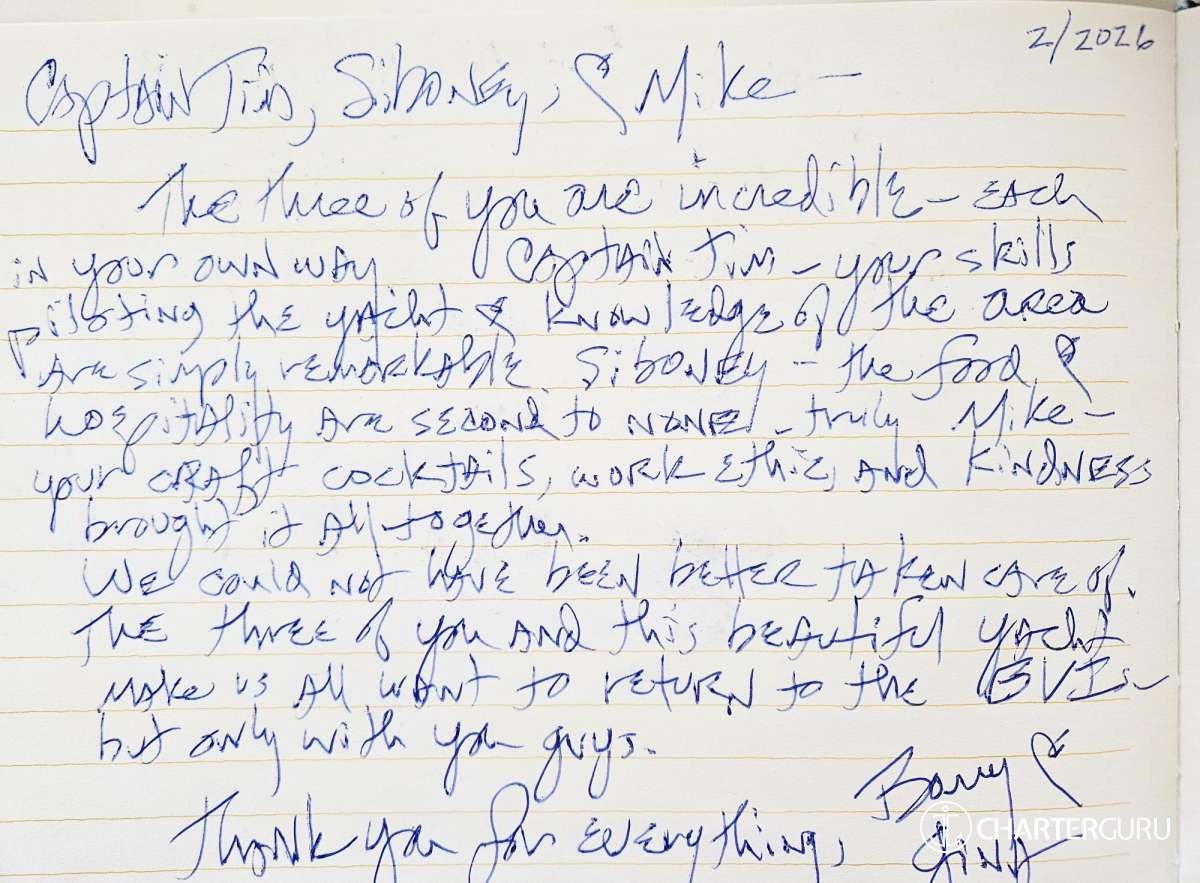 2/2026
Captain Tim, Siboney, & Mike —
The three of you are incredible – each
in your own way Captain Tim – your skills
piloting the yacht & knowledge of the area
are simply remarkable. Siboney – the food &
hospitality are second to none – truly Mike –
your craft cocktails, work ethic, and kindness
brought it all together.
We could not have been better taken care of.
The three of you and this beautiful yacht
make us all want to return to the BVIs –
but only with you guys.
Thank you for everything,
Barry &
Gina
CHARTERGURU